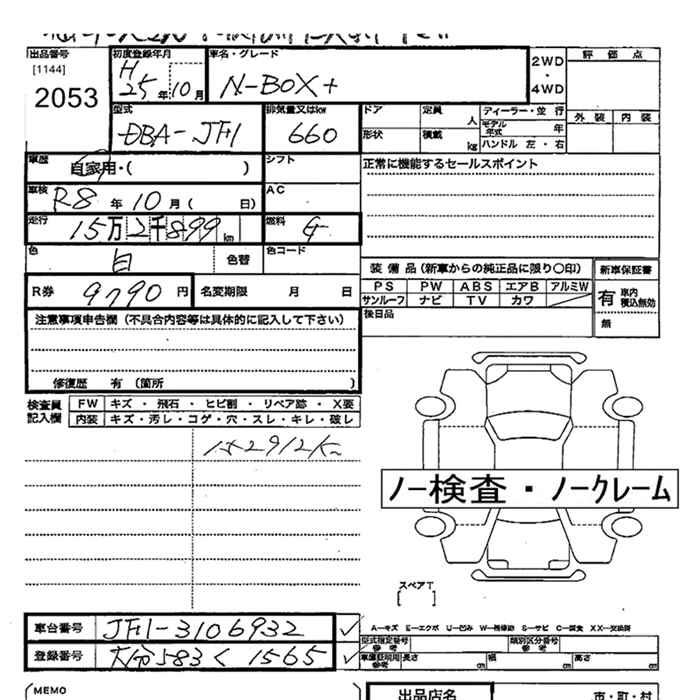 出品番号
[1144]
2053
初度登録年月
H
25年10月
車名・グレード
N-BOX+
2WD
・
4WD
評価点
外装 内装
型式
DBA-JF1
排気量又はkw
660
ドア 定員 人
形状 積載 kg
ディーラー・並行
モデル年式 年
ハンドル 左・右
車歴
自家用・( )
シフト
正常に機能するセールスポイント
車検
R8年10月( 日)
AC
走行
15万2千899km
燃料
G
色
白
色替
色コード
装備品(新車からの純正品に限り○印)
PS PW ABS エアB アルミW
サンルーフ ナビ TV カワ
新車保証書
有 車内積込無効
無
R券
9790円
名変期限 月 日
後日品
注意事項申告欄(不具合内容等は具体的に記入して下さい)
修復歴 有(箇所 )
検査員記入欄
FW キズ・飛石・ヒビ割・リペア跡・X要
内装 キズ・汚レ・コゲ・穴・スレ・キレ・破レ
ノー検査・ノークレーム
スペアT
[ ]
車台番号
JF1-3106932
登録番号
大分583く1565
A-キズ E-エクボ U-凹み W-補修跡 S-サビ C-腐食 XX-交換済
型式指定番号 参考
類別区分番号 参考
車庫証明用 参考
長さ cm 幅 cm 高さ cm
MEMO
出品店名
市・町・村